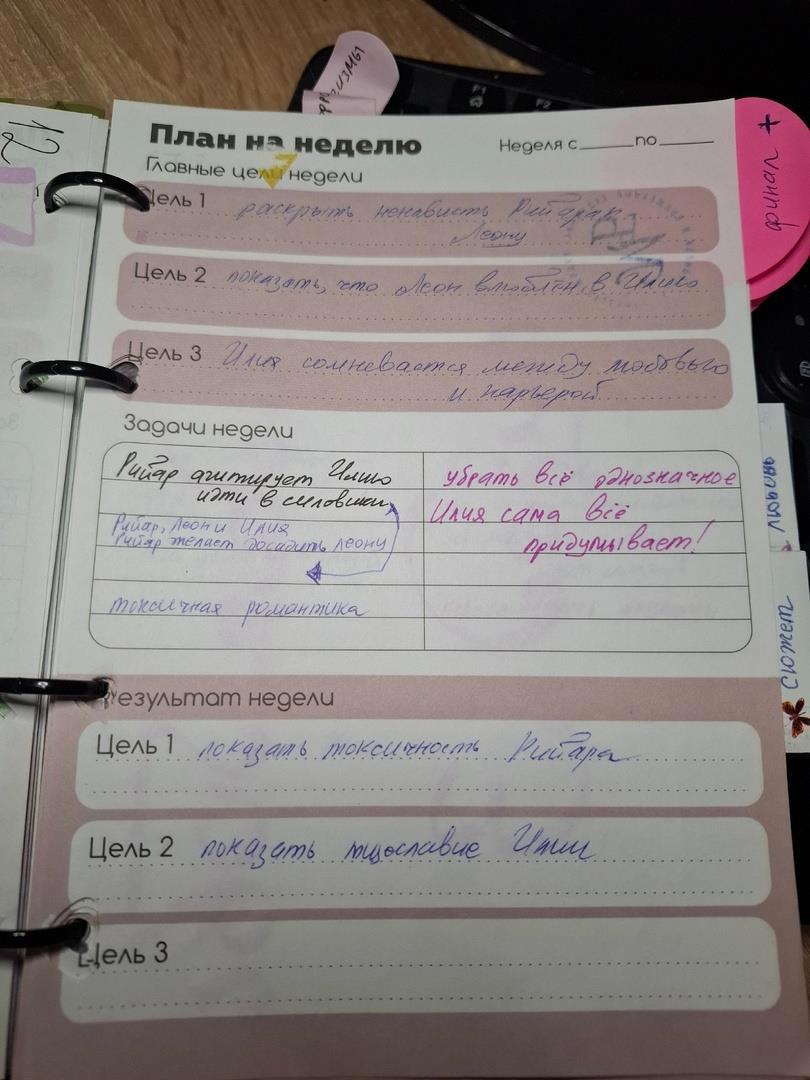 План на неделю
Неделя с_____по_____
Главные цели недели
Цель 1 раскрыть ненависть Рийара к
Леону
Цель 2 показать, что Леон влюблён в Илию
Цель 3 Илия сомневается между любовью
и карьерой
Задачи недели
Рийар агитирует Илию
идти в силовики
Рийар, Леон и Илия
Рийар желает досадить Леону
токсичная романтика
убрать всё однозначное
Илия сама всё
придумывает!
Результат недели
Цель 1 показать токсичность Рийара
Цель 2 показать тщославие Илии
Цель 3
12
финал +
любовь
сюжет
F1
F2